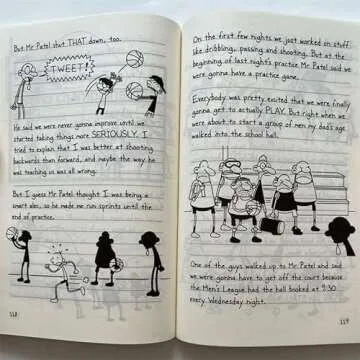 But Mr Patel shut THAT down, too.
TWEET!
He said we were never gonna improve until we
started taking more SERIOUSLY. I
tried to explain that I was better at shooting
backwards than forward, and maybe the way he
was teaching us was all wrong.
But I guess Mr Patel thought I was being a
smart alec, so he made me run sprints until the
end of practice.
118
On the first few nights we just worked on stuff
like dribbling, passing and shooting. But at the
beginning of last night's practice Mr Patel said we
were gonna have a practice game.
Everybody was pretty excited that we were finally
gonna get to actually PLAY. But right when we
were about to start a group of men my dad's age
walked into the school hall.
One of the guys walked up to Mr Patel and said
we were gonna have to get off the court because
the Men's League had the hall booked at 9:30
every Wednesday night.
119